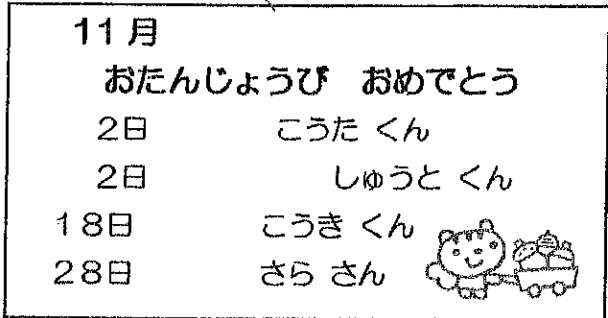 11月
おたんじょうび おめでとう
2日 こうた くん
2日 しゅうと くん
18日 こうき くん
28日 さら さん